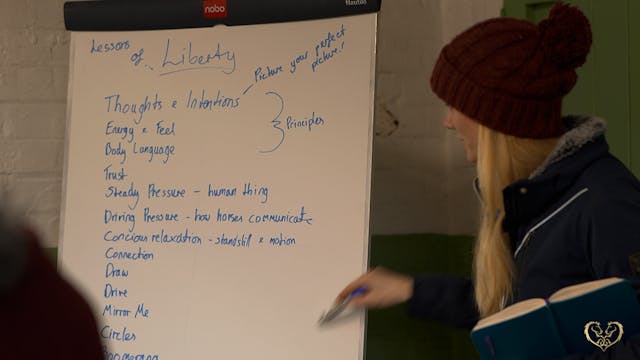 nobo
Nautos
Lessons of.. Liberty
Picture your perfect picture!
Thoughts & Intentions
Energy & Feel
Body Language
Principles
Trust
Steady Pressure - human thing
Driving Pressure - how horses communicate
Concious relaxation - standstill & motion
Connection
Draw
Drive
Mirror Me
Circles
Boomerang